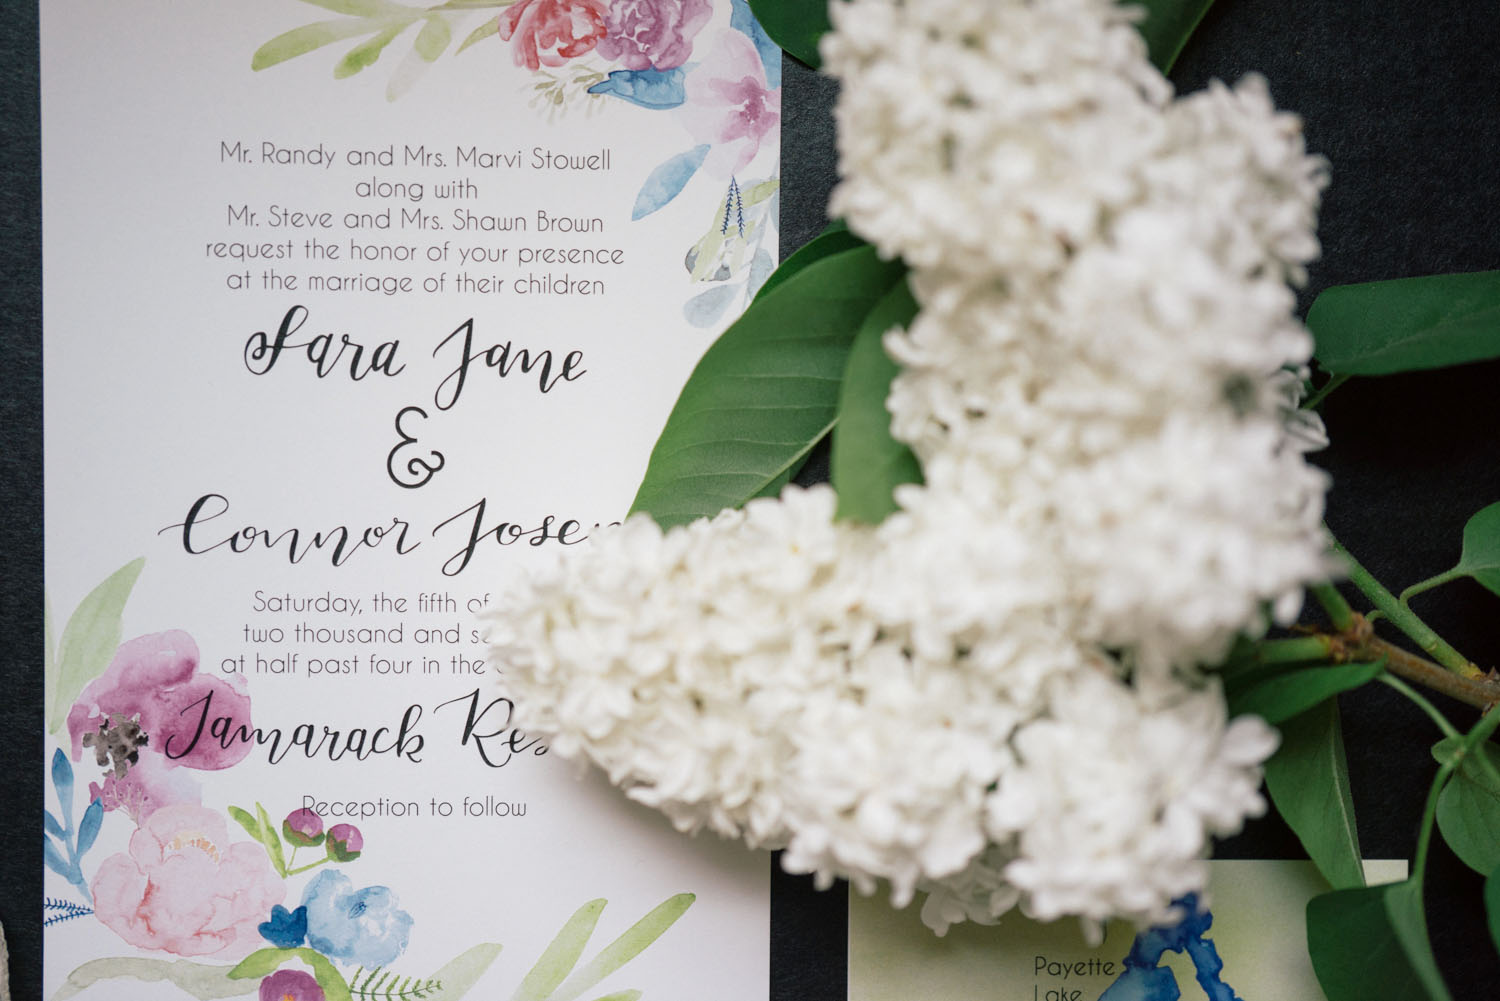 Mr. Randy and Mrs. Marvi Stowell
along with
Mr. Steve and Mrs. Shawn Brown
request the honor of your presence
at the marriage of their children
Sara Jane
&
Connor
Saturday, the fifth of
two thousand and
at half past four in the
Tamarack
Reception to follow
Payette
Lake